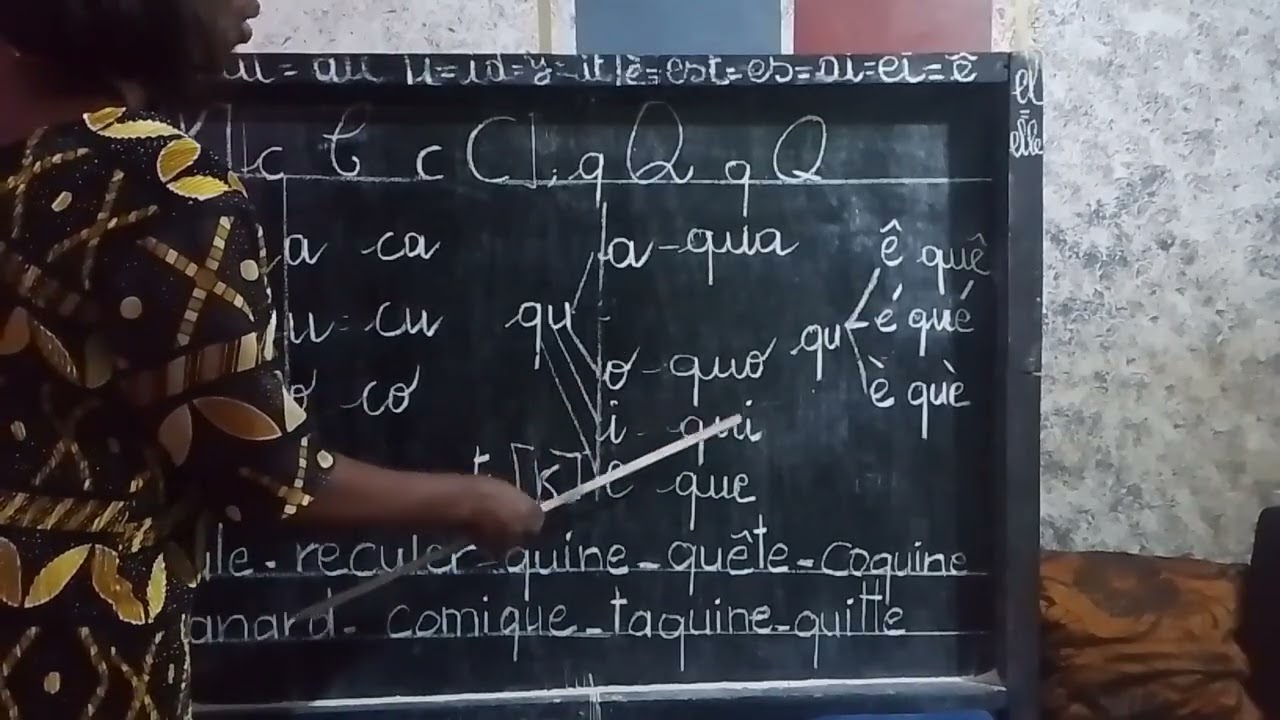 = au | u = id = y = it | è = est = es = ai = ei = ê
el
=
elle
c C c C q Q q Q
a ca
a - qua
ê quê
u cu
qu
qu
é qué
o co
o - quo
è què
i - qui
[K] e que
reculer - quine - quête - coquine
anard - comique - taquine - quitte